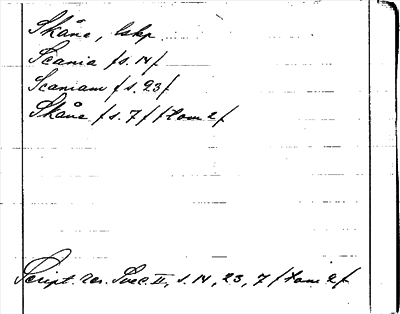 Skåne, lskp
Scania /s. 14/
Scaniam /s. 23/
Skåne /s. 7/ /tom 2/
Script. rer. Svec. II, s. 14, 23, 7 /tom. 2/.